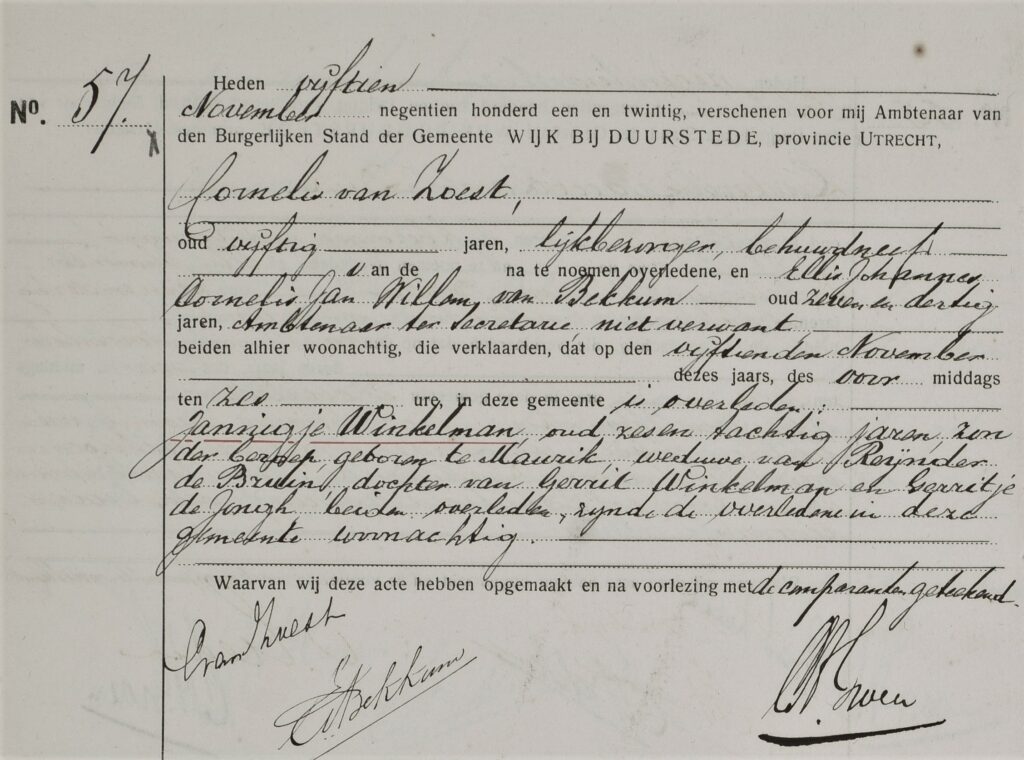 No. 57.
Heden vijftien
November negentien honderd een en twintig, verschenen voor mij Ambtenaar van
den Burgerlijken Stand der Gemeente WIJK BIJ DUURSTEDE, provincie UTRECHT,
Cornelis van Zoest,
oud vijftig jaren, lijkbezorger, behuwdneef
van de na te noemen overledene, en Ellis Johannes
Cornelis Jan Willem van Bekkum oud zeven en dertig
jaren, Ambtenaar ter secretarie, niet verwant,
beiden alhier woonachtig, die verklaarden, dat op den vijftienden November
dezes jaars, des voor middags
ten zes ure, in deze gemeente is overleden:
Jannigje Winkelman, oud zes en tachtig jaren, zon
der beroep, geboren te Maurik, weduwe van Reijnder
de Bruin, dochter van Gerrit Winkelman en Gerritje
de Jongh, beiden overleden, zijnde de overledene in deze
gemeente woonachtig.
Waarvan wij deze acte hebben opgemaakt en na voorlezing met de comparanten geteekend.
C van Zoest
v Bekkum